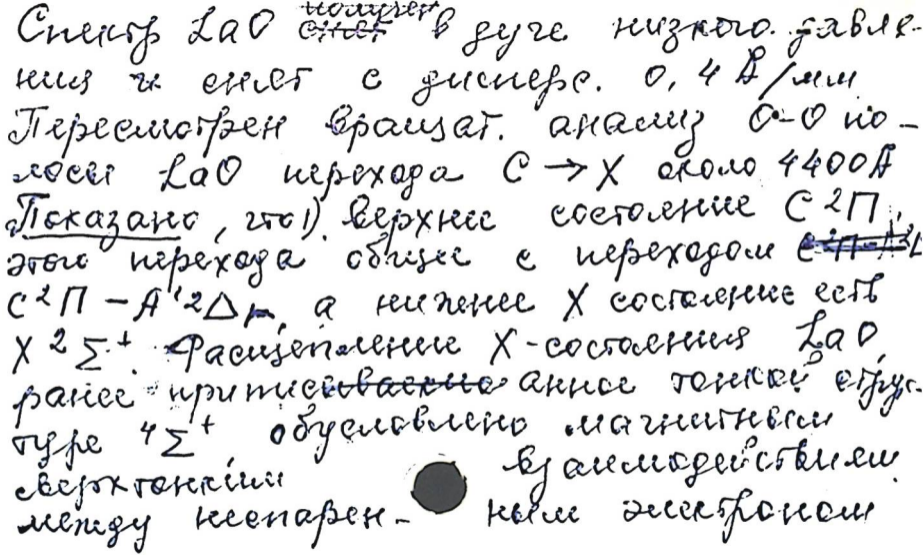 получен
Спектр LaO снят в дуге низкого давле-
ния и снят с дисперс. 0,4 Å/мм
Пересмотрен вращат. анализ O-O по-
лосы LaO перехода C → X около 4400Å
Показано, что 1) верхнее состояние C ²П
этого перехода общее с переходом
C ²П – A' ²Δr, а нижнее X состояние есть
X ²Σ⁺. Расщепление X-состояния LaO,
ранее приписанное тонкой струк-
туре ⁴Σ⁺, обусловлено магнитным
сверхтонким взаимодействием
между неспарен- ным электроном